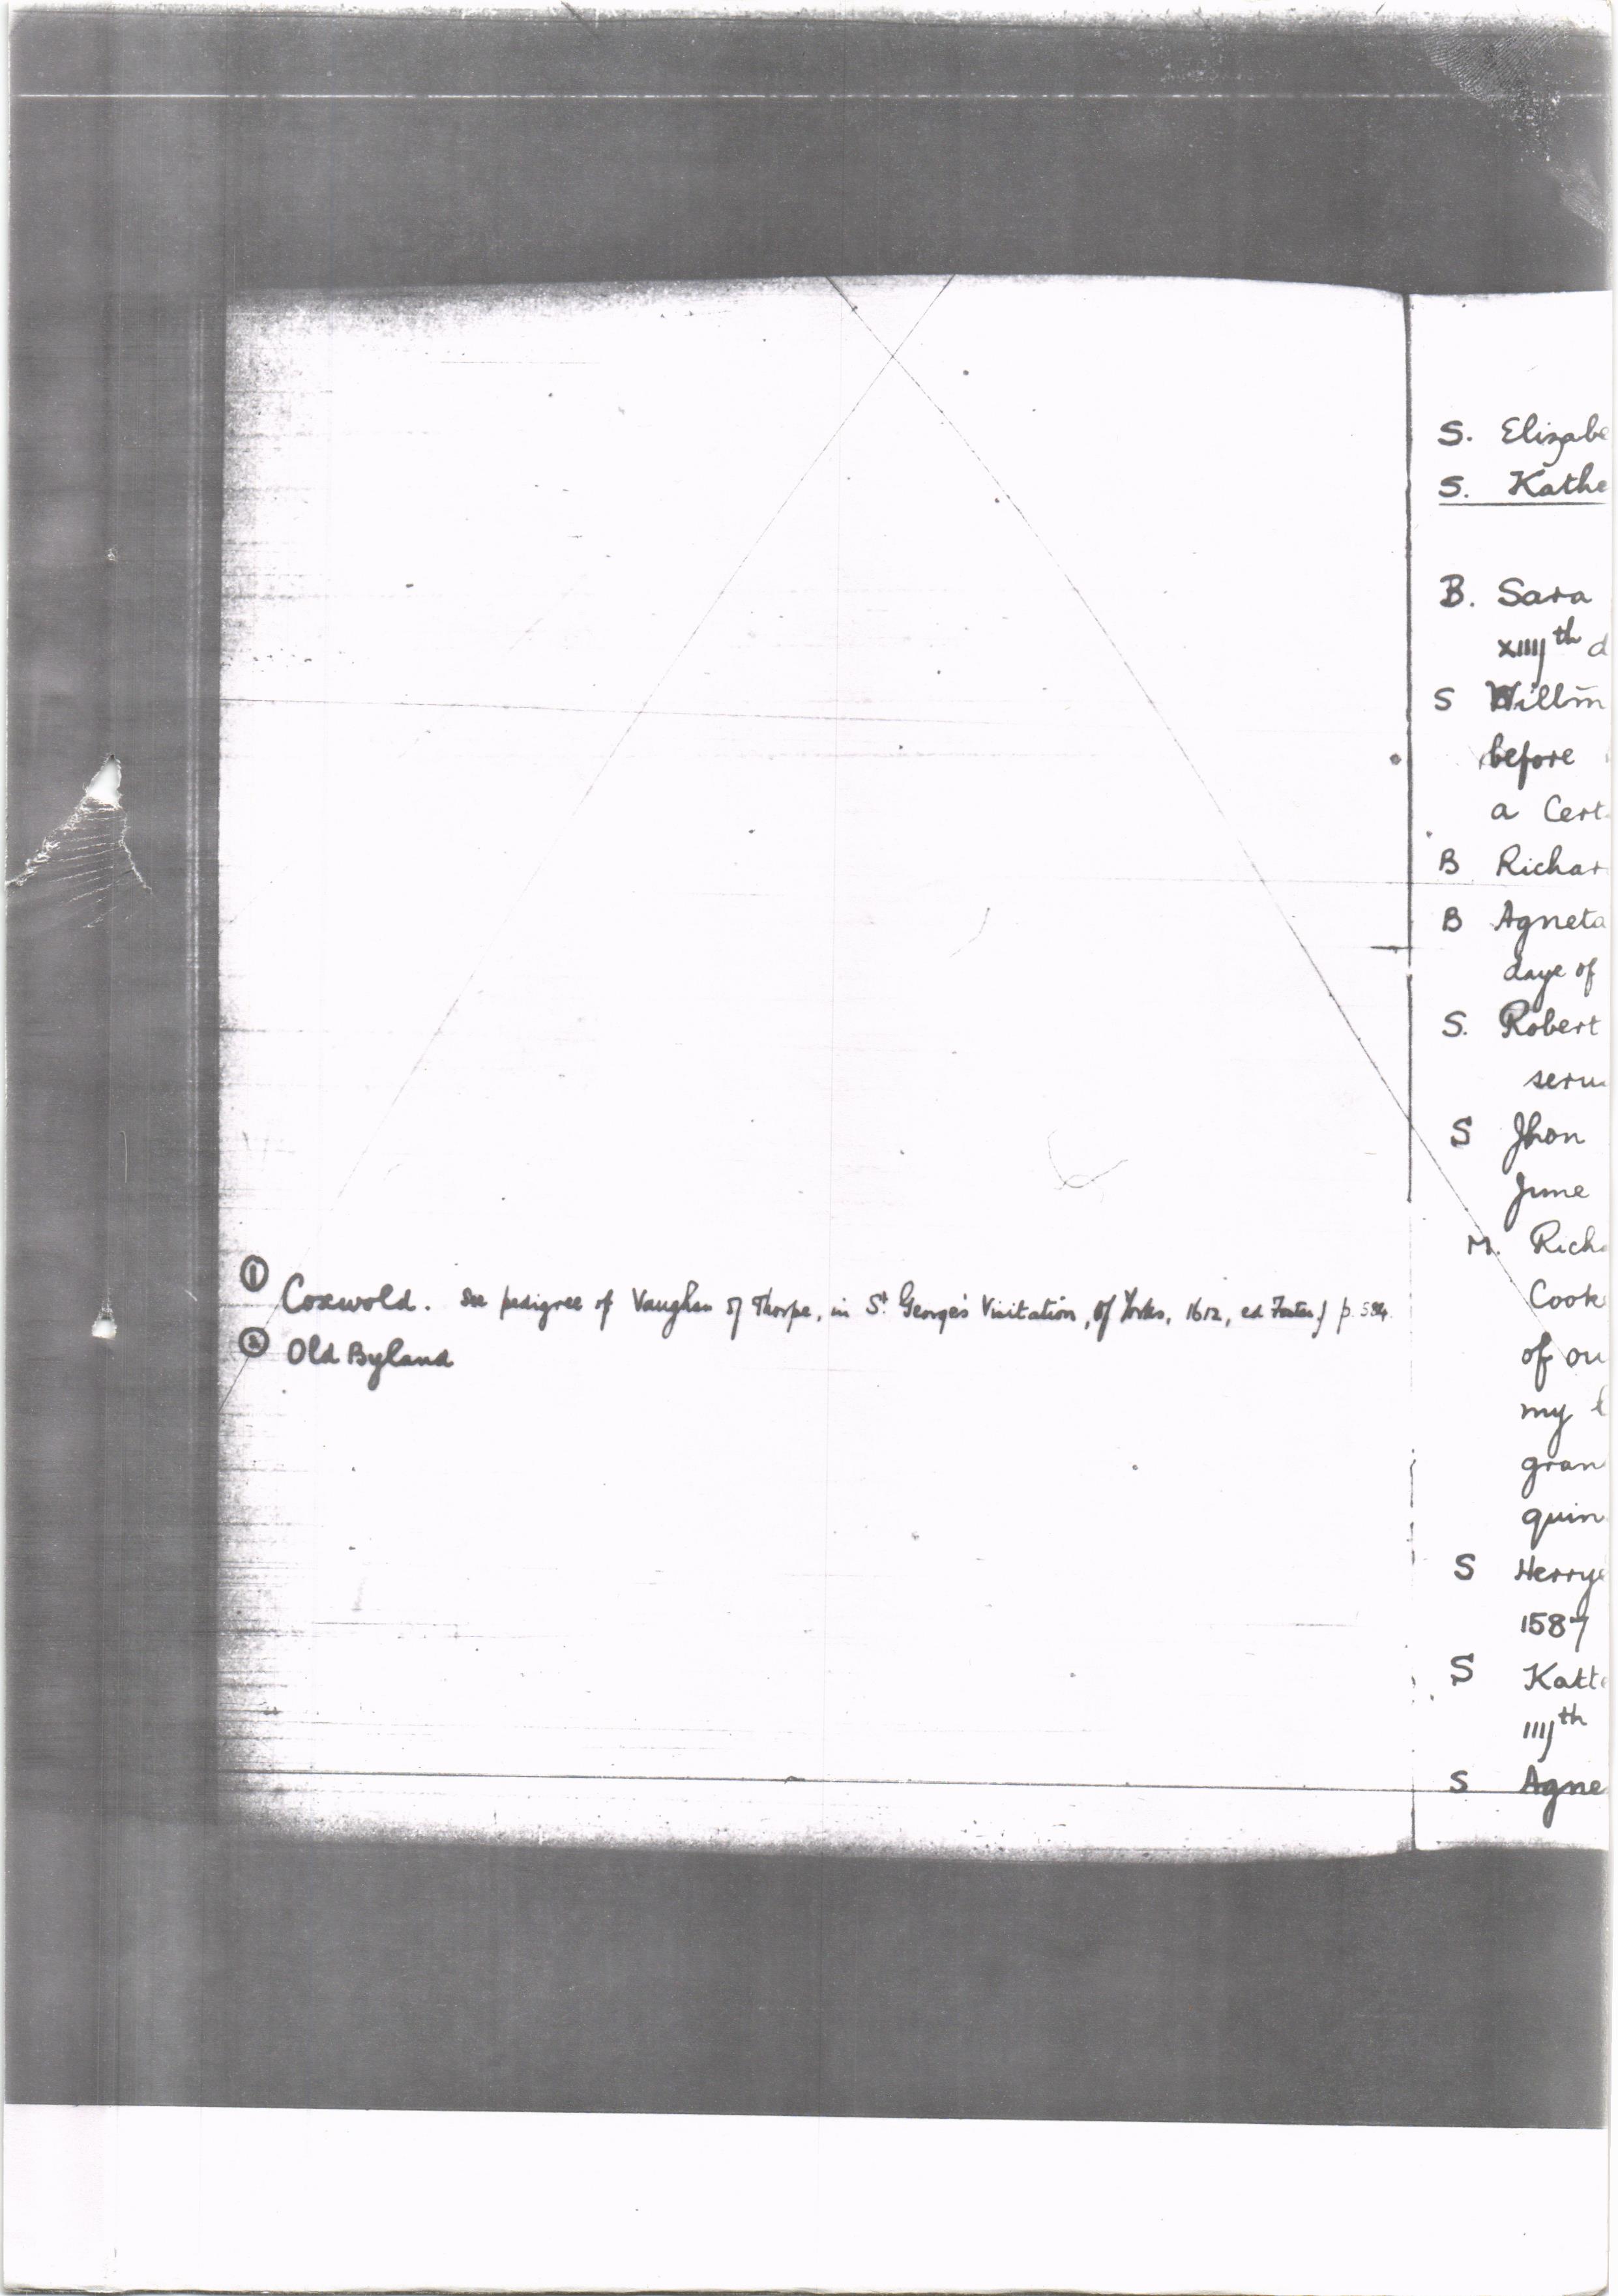 ① Coxwold. See pedigree of Vaughan of Thorpe, in St George's Visitation, of Yorks, 1612, ed Foster, p. 584.
② Old Byland
S. Elizabe
S. Kathe
B. Sara
xiiijth d
S Willm̄
before
a Cert
B Richar
B Agneta
daye of
S. Robert
seru
S Jhon
June
M. Richa
Cook
of ou
my
gran
quin
S Herrye
1587
S Katte
iiijth
S Agne